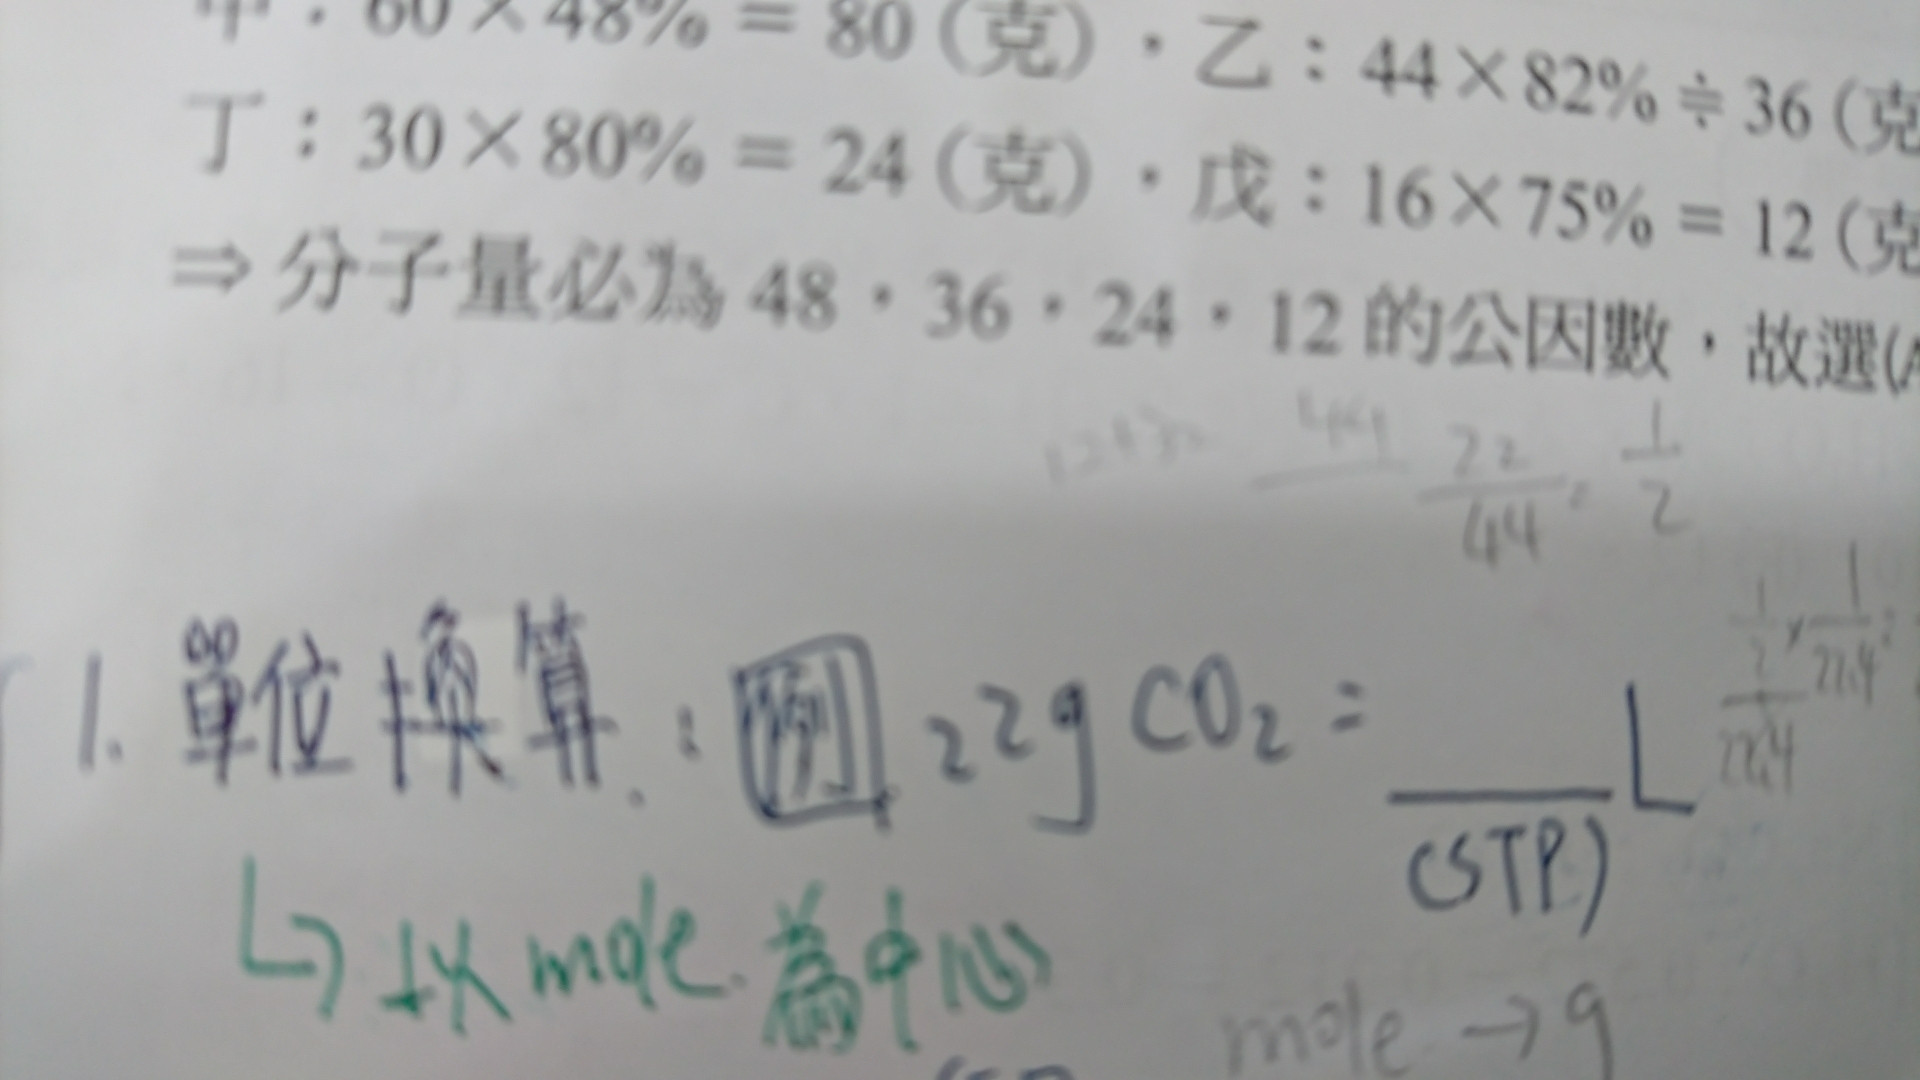 甲：60×48% = 80 (克)，乙：44×82% ≑ 36 (克
丁：30×80% = 24 (克)，戊：16×75% = 12 (克
⇒ 分子量必為 48，36，24，12 的公因數，故選(A
44 22/44 = 1/2
1. 單位換算：例 22g CO₂ = ____ L
(STP)
1/2 × 1/22.4 =
22.4
↳ 以 mole 為中心
mole → g